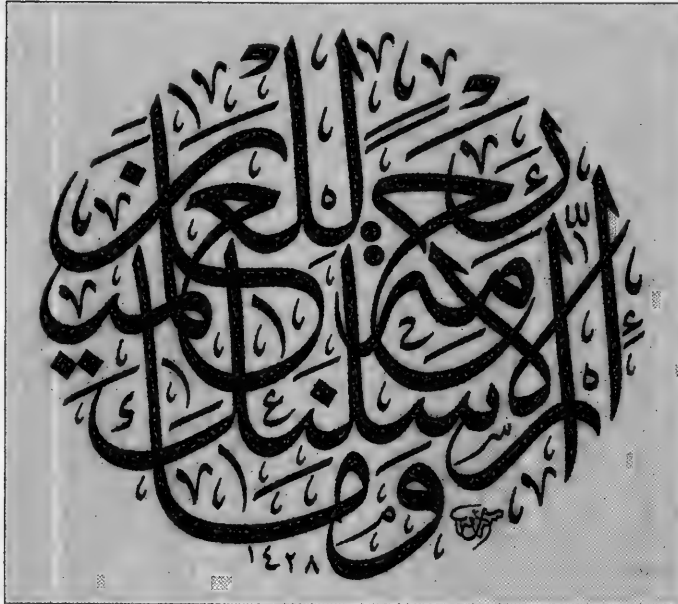 وَمَا أَرْسَلْنٰكَ إِلَّا رَحْمَةً لِلْعٰلَمِينَ
١٤٢٨